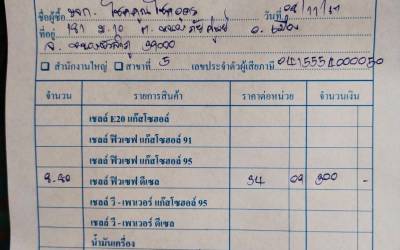 ชื่อผู้ซื้อ หจก. โชคคูณโชคอุดร วันที่ 08/11/67
ที่อยู่ 191 ม.10 ต. หนองภัยศูนย์ อ. เมือง
จ. หนองบัวลำภู 39000
สำนักงานใหญ่ สาขาที่ 5 เลขประจำตัวผู้เสียภาษี
จำนวน รายการสินค้า ราคาต่อหน่วย จำนวนเงิน
เชลล์ E20 แก๊สโซฮอล์
เชลล์ ฟิวเซฟ แก๊สโซฮอล์ 91
เชลล์ ฟิวเซฟ แก๊สโซฮอล์ 95
เชลล์ ฟิวเซฟ ดีเซล 34 09 300 -
เชลล์ วี - เพาเวอร์ แก๊สโซฮอล์ 95
เชลล์ วี - เพาเวอร์ ดีเซล
น้ำมันเครื่อง